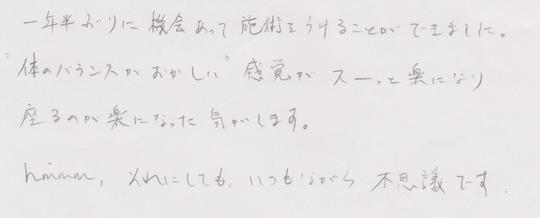 一年半ぶりに機会あって施術をうけることができました。
"体のバランスがおかしい"感覚がスーっと楽になり
座るのが楽になった気がします。
hmmm, それにしても、いつもながら不思議です.